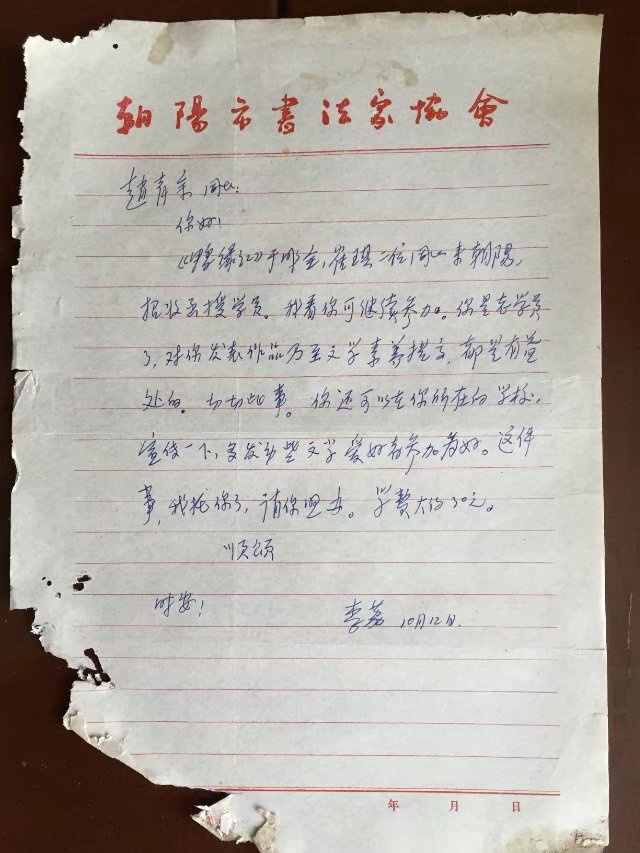 朝陽市書法家協會
趙青 同志:
你好!
于 金,崔琪二位同志来朝陽,
招收函授学员。我看你可继续参加。你是老学员
了,对你发表作品乃至文学素养提高,都是有益
处的。切切此事。你还可以在你所在的学校,
宣传一下,多发动些文学爱好者参加为好。这件
事,我托你了,请你照办。学费大约30元。
顺颂
时安!
李 10月12日.
年 月 日